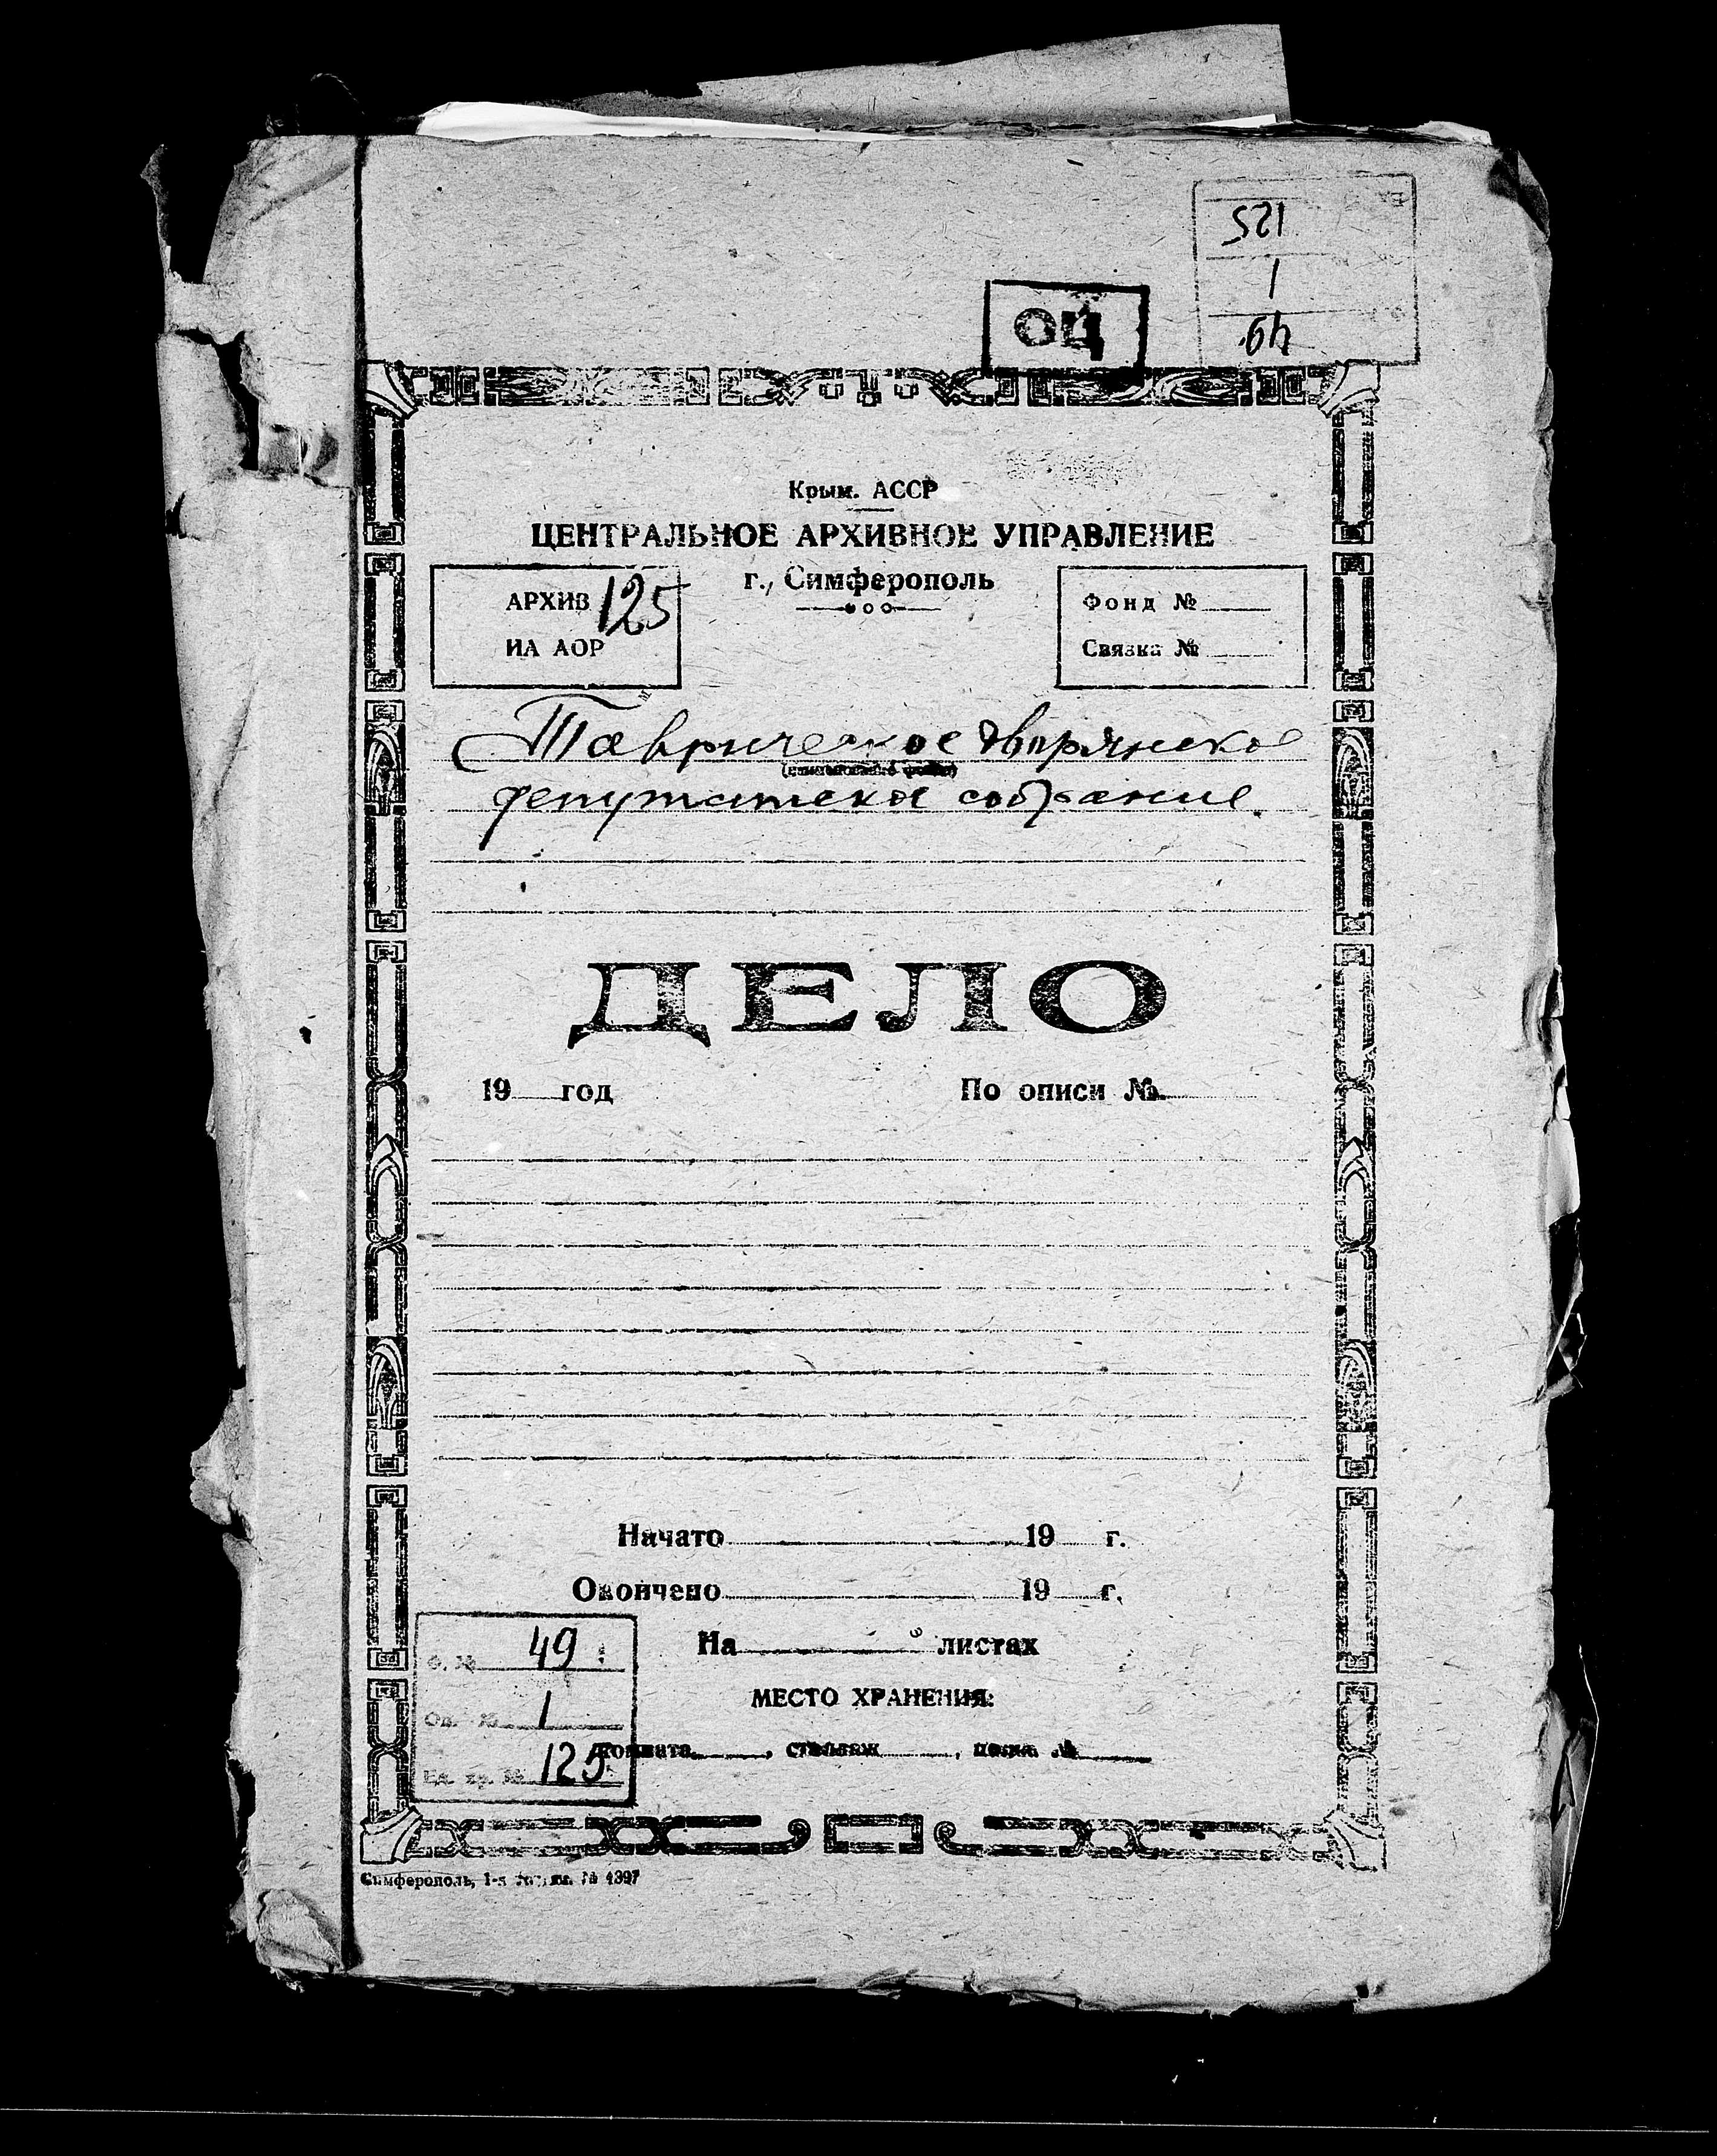 125
1
49.
ОЦ
Крым. АССР
ЦЕНТРАЛЬНОЕ АРХИВНОЕ УПРАВЛЕНИЕ
г., Симферополь
АРХИВ 125
ИА АОР
Фонд №
Связка №
Таврическое дворянское
(наименование фонда)
депутатское собрание.
ДЕЛО
19 год По описи №
Начато 19 г.
Окончено 19 г.
На листах
МЕСТО ХРАНЕНИЯ:
комната , стеллаж , полка №
Ф. № 49
Оп. № 1
Ед. хр. № 125
Симферополь, 1-я № 4397